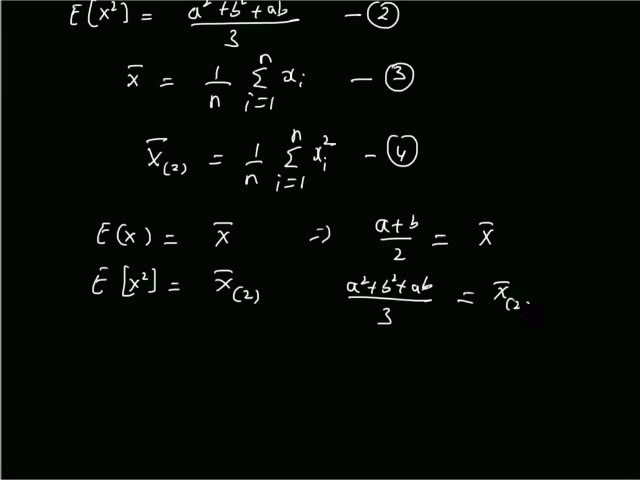 E[x²] = a²+b²+ab / 3 — ②
x̄ = 1/n Σ_{i=1}^{n} xᵢ — ③
x̄₍₂₎ = 1/n Σ_{i=1}^{n} xᵢ² — ④
E(x) = x̄ ⇒ a+b / 2 = x̄
E[x²] = x̄₍₂₎ a²+b²+ab / 3 = x̄₍₂